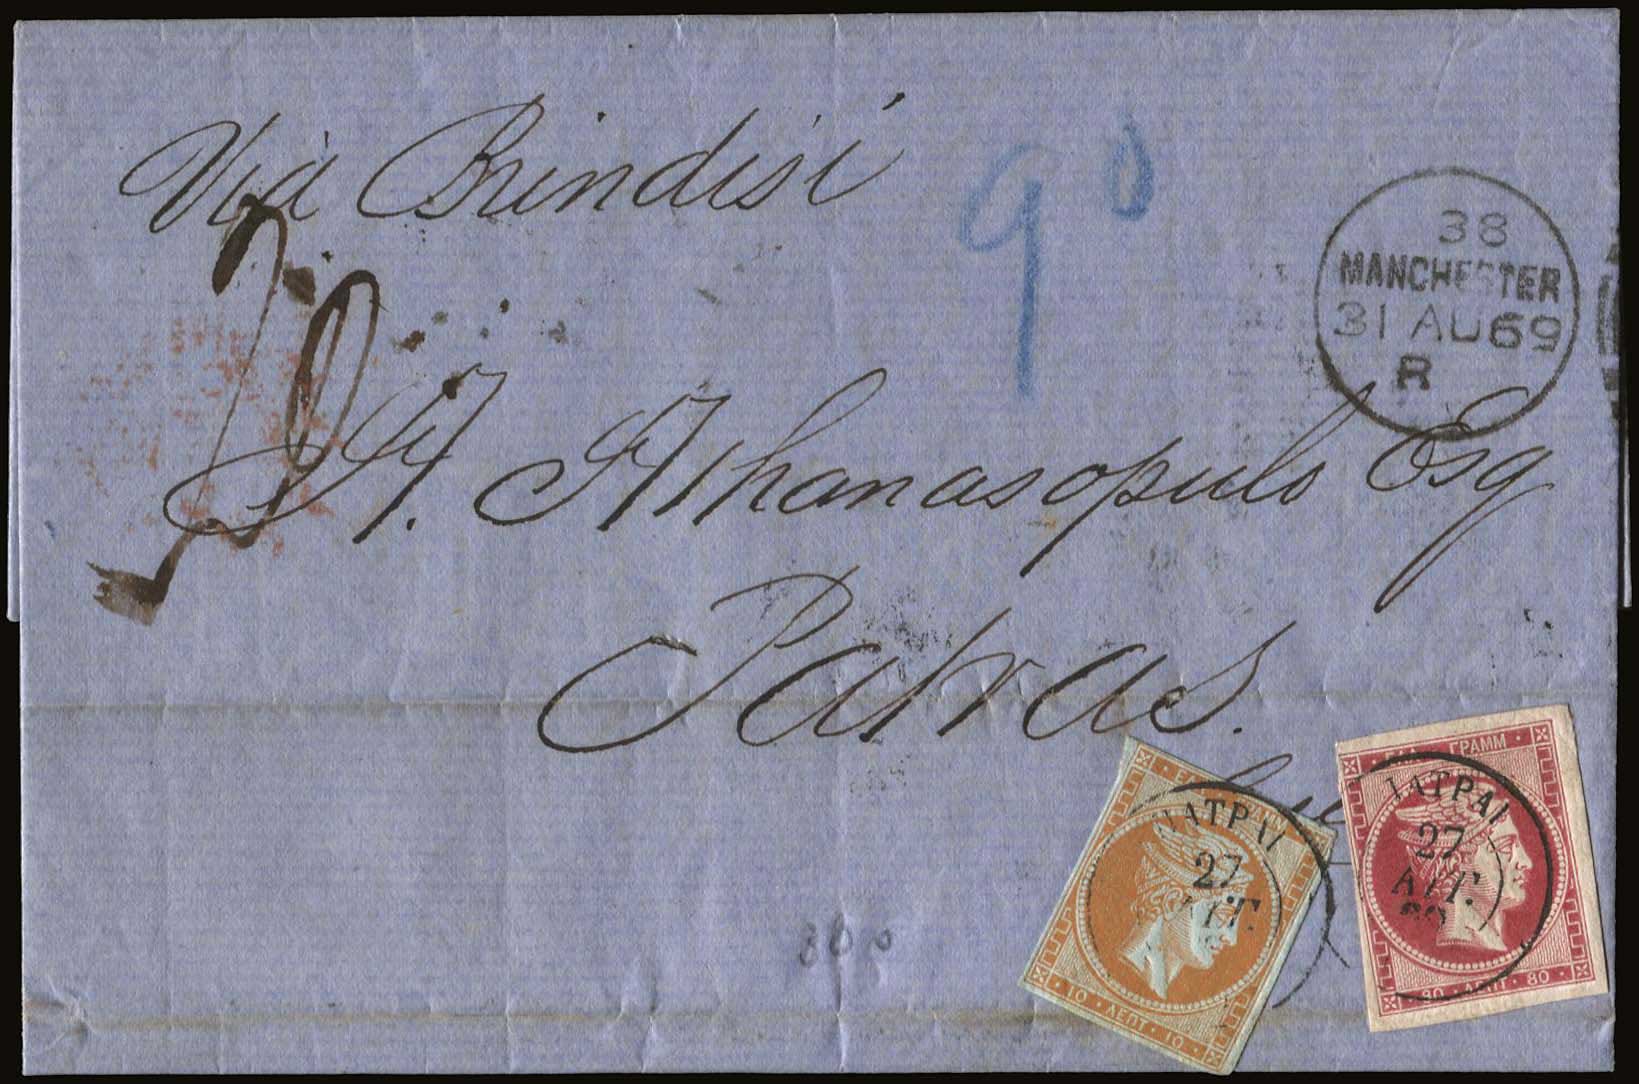 Via Brindisi
9
38
MANCHESTER
31 AU 69
R
Athanasopulo Esq
Patras.
ΓΡΑΜΜ
ΠΑΤΡΑΙ
27
ΑΥΓ.
80 · ΛΕΠΤ · 80
ΠΑΤΡΑΙ
27
ΑΥΓ.
10 · ΛΕΠΤ · 10